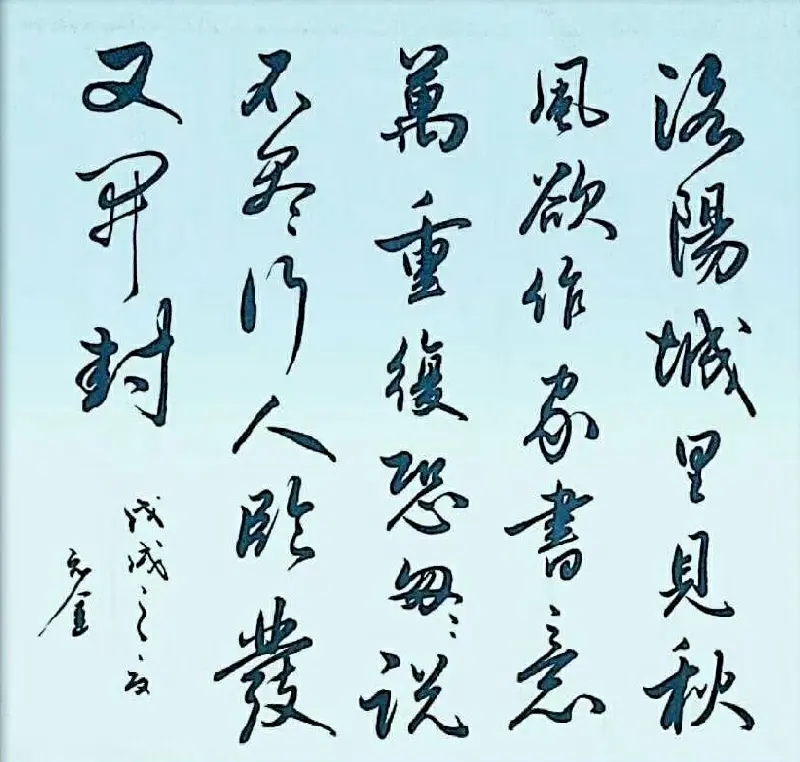 洛陽城里見秋
風欲作家書意
萬重復恐匆〻説
不盡行人臨發
又開封
戊戌之夏